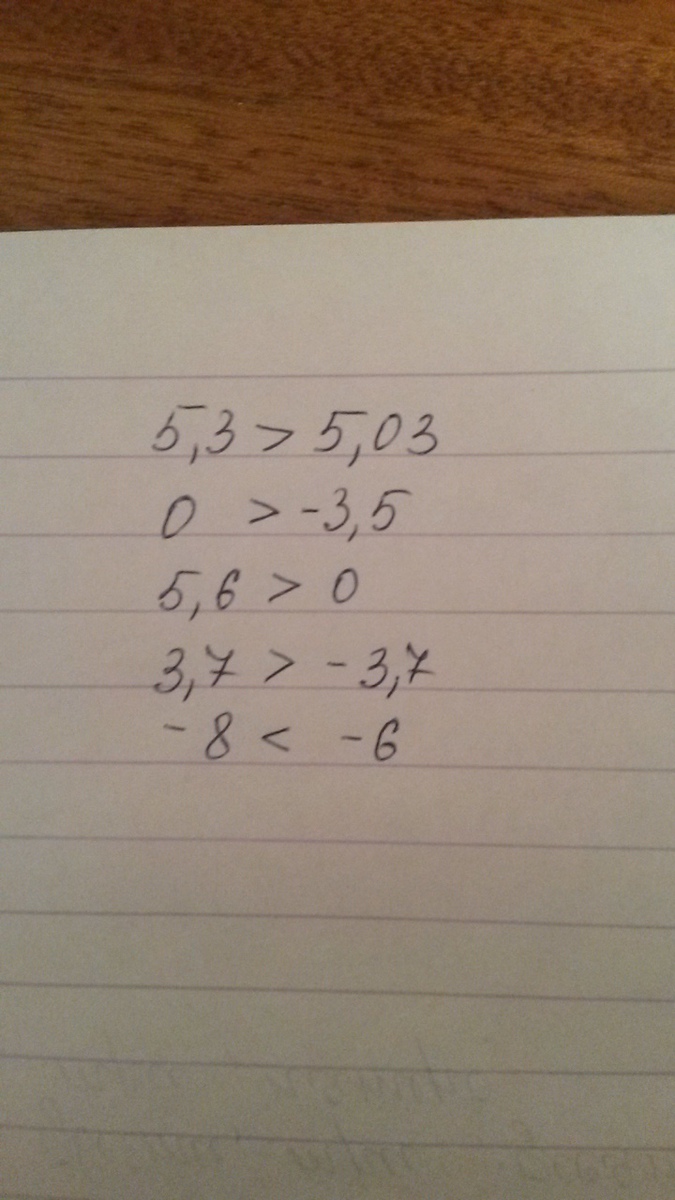 5,3 > 5,03
0 > -3,5
5,6 > 0
3,7 > -3,7
-8 < -6